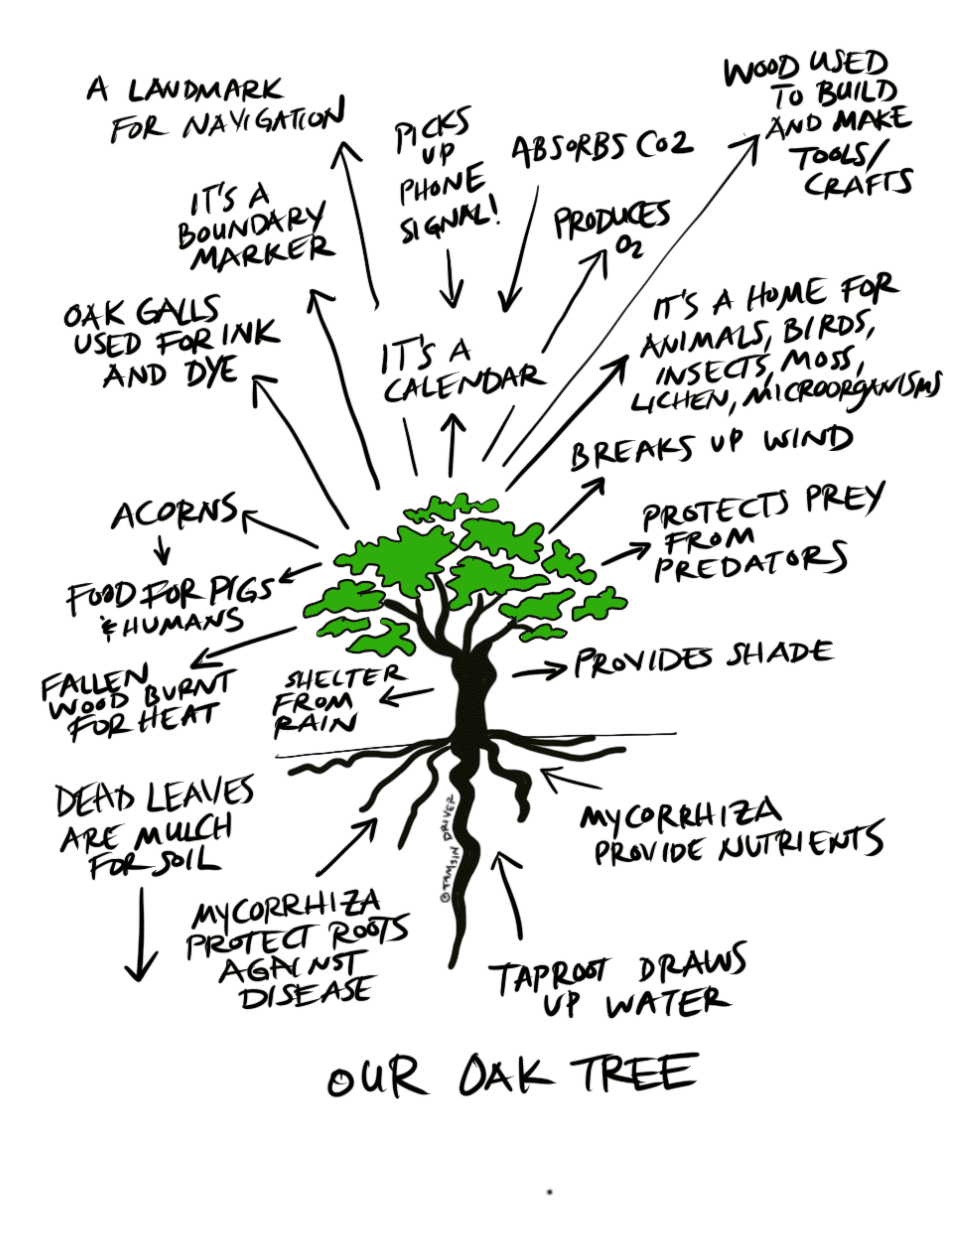 A LANDMARK
FOR NAVIGATION
PICKS
UP
PHONE
SIGNAL!
ABSORBS CO2
WOOD USED
TO BUILD
AND MAKE
TOOLS/
CRAFTS
IT'S A
BOUNDARY
MARKER
PRODUCES
O2
OAK GALLS
USED FOR INK
AND DYE
IT'S A
CALENDAR
IT'S A HOME FOR
ANIMALS, BIRDS,
INSECTS, MOSS,
LICHEN, MICROORGANISMS
BREAKS UP WIND
ACORNS
FOOD FOR PIGS
& HUMANS
PROTECTS PREY
FROM
PREDATORS
FALLEN
WOOD BURNT
FOR HEAT
SHELTER
FROM
RAIN
PROVIDES SHADE
DEAD LEAVES
ARE MULCH
FOR SOIL
©TAMSIN DRIVER
MYCORRHIZA
PROVIDE NUTRIENTS
MYCORRHIZA
PROTECT ROOTS
AGAINST
DISEASE
TAPROOT DRAWS
UP WATER
OUR OAK TREE